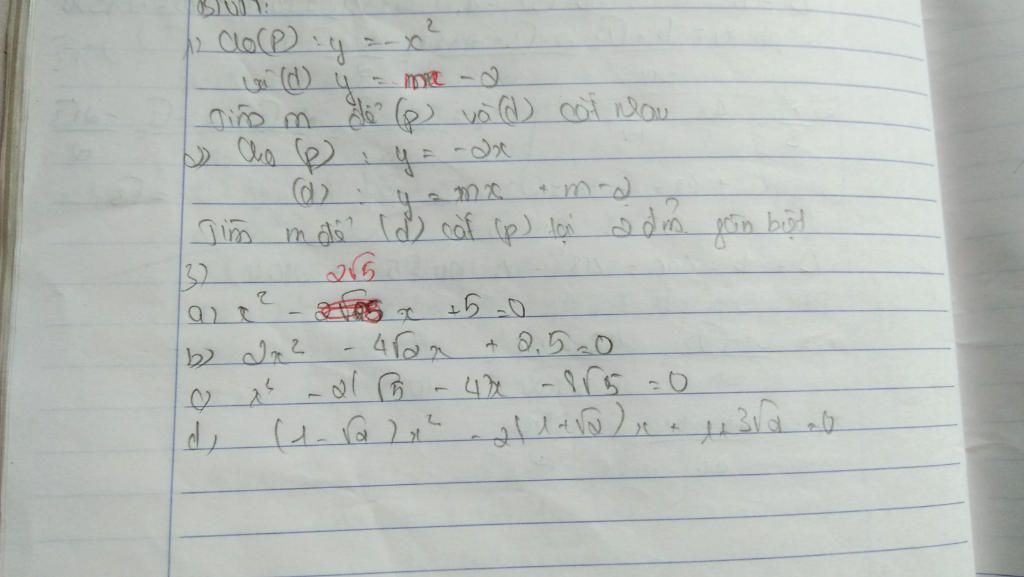 1) Cho (P) : y = -x²
và (d) y = mx - 2
Tìm m để (P) và (d) cắt nhau
2) Cho (P) : y = -2x
(d) : y = mx + m - 2
Tìm m để (d) cắt (P) tại 2 điểm phân biệt
3) 2√5
a) x² - x + 5 = 0
b) 2x² - 4√2x + 2,5 = 0
c) x² - 2(√5 - 4x - 8√5 = 0
d, (1 - √2)x² - 2(1+√2)x + 1+3√2 = 0